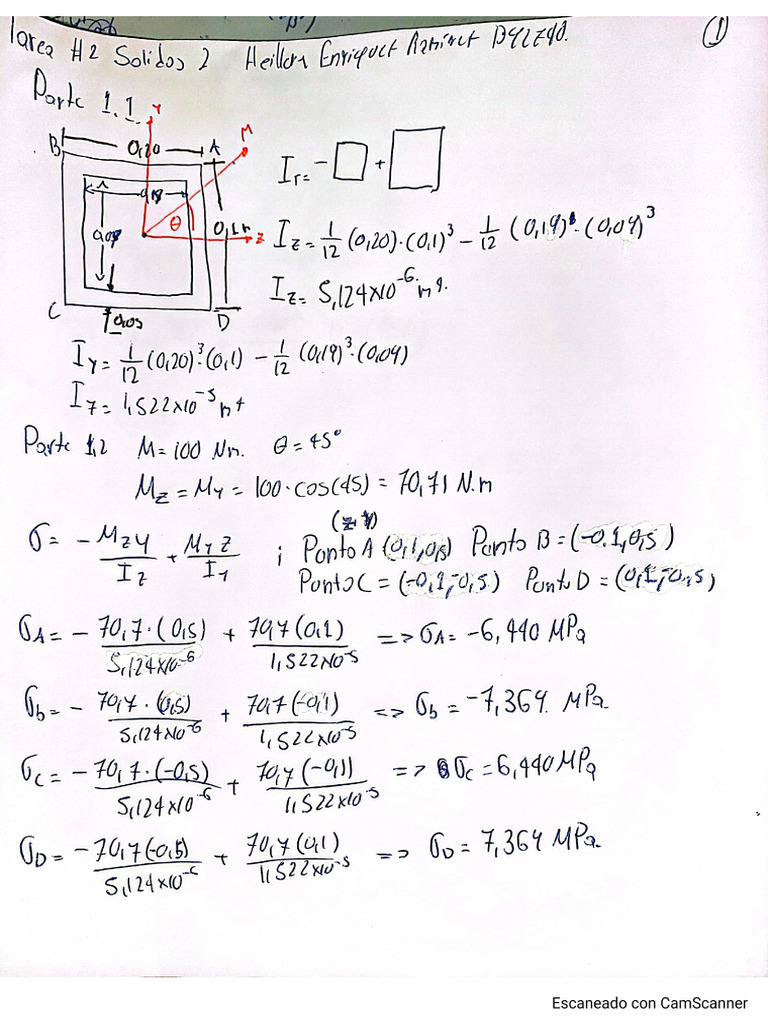 Tarea #2 Solidos 2 Heillem Enriquez ①
Parte 1.1
Y
M
B 0,20 A
θ
0,1
Z
0,05
C D
I_T = - □ + □
I_Z = 1/12 (0,20)·(0,1)³ - 1/12 (0,19)·(0,09)³
I_Z = 5,124x10⁻⁶ m⁴.
I_Y = 1/12 (0,20)³·(0,1) - 1/12 (0,19)³·(0,09)
I_Y = 1,522x10⁻⁵ m⁴
Parte 1,2 M = 100 Nm. θ = 45°
M_Z = M_Y = 100·cos(45) = 70,71 N.m
(z, y)
σ = - M_Z Y / I_Z + M_Y Z / I_Y ; Punto A (0,1,0,5) Punto B = (-0,1,0,5)
Punto C = (-0,1,-0,5) Punto D = (0,1,-0,5)
σ_A = - 70,7·(0,5) / 5,124x10⁻⁶ + 70,7(0,1) / 1,522x10⁻⁵ => σ_A = -6,440 MPa
σ_b = - 70,7·(0,5) / 5,124x10⁻⁶ + 70,7(-0,1) / 1,522x10⁻⁵ => σ_b = -7,364 MPa.
σ_C = - 70,7·(-0,5) / 5,124x10⁻⁶ + 70,7(-0,1) / 1,522x10⁻⁵ => σ_C = 6,440 MPa
σ_D = - 70,7(-0,5) / 5,124x10⁻⁶ + 70,7(0,1) / 1,522x10⁻⁵ => σ_D = 7,364 MPa.
Escaneado con CamScanner